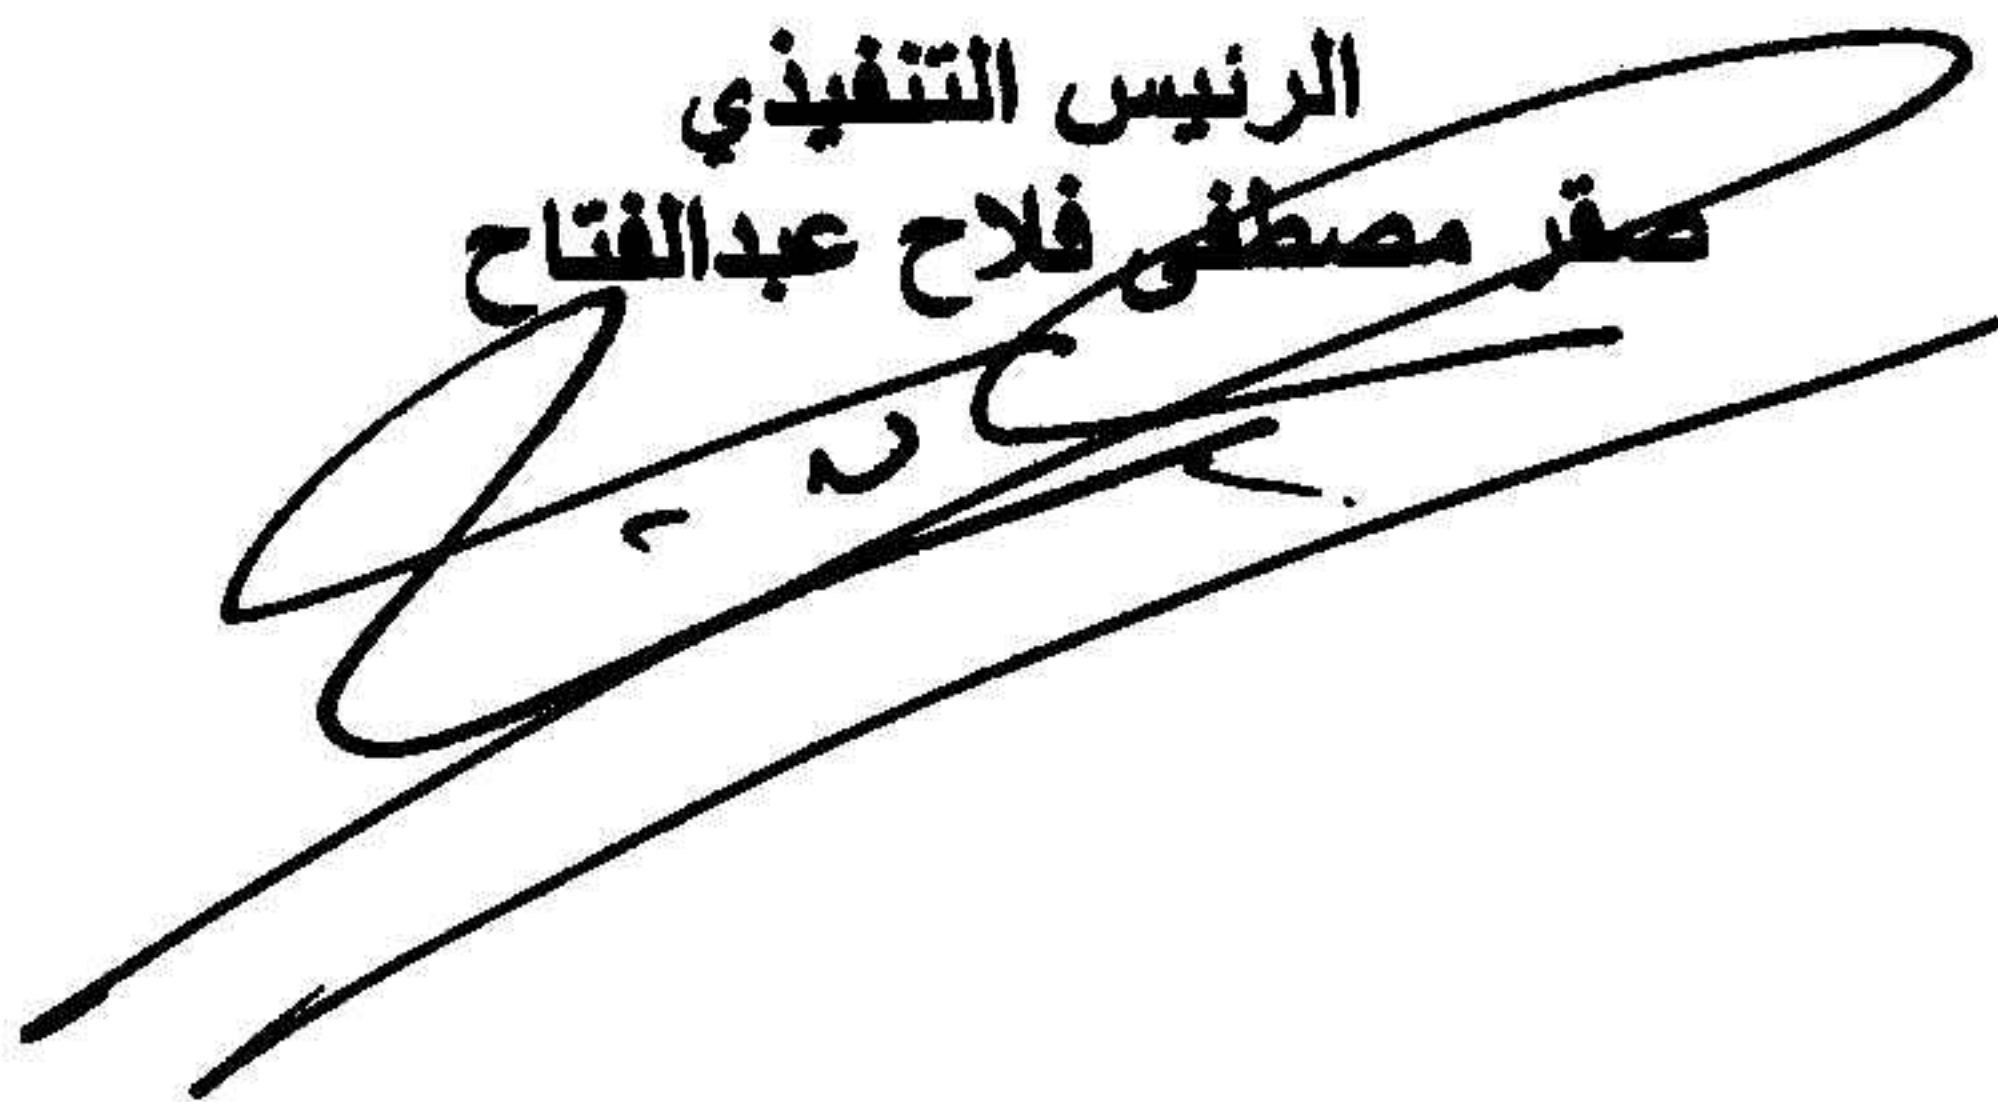 الرئيس التنفيذي
صقر مصطفى فلاح عبدالفتاح